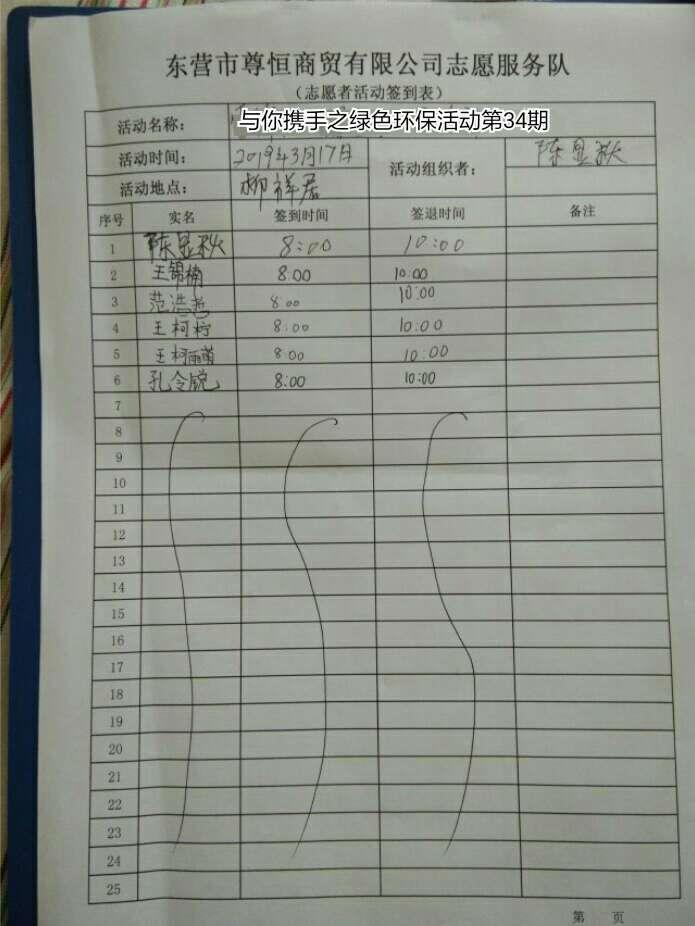 东营市尊恒商贸有限公司志愿服务队
(志愿者活动签到表)
活动名称: 与你携手之绿色环保活动第34期
活动时间: 2019年3月17日 活动组织者: 陈显秋
活动地点: 柳祥居
序号 实名 签到时间 签退时间 备注
1 陈显秋 8:00 10:00
2 王锦楠 8:00 10:00
3 范浩 8:00 10:00
4 王柯柠 8:00 10:00
5 王柯 8:00 10:00
6 孔令锐 8:00 10:00
7
8
9
10
11
12
13
14
15
16
17
18
19
20
21
22
23
24
25
第 页